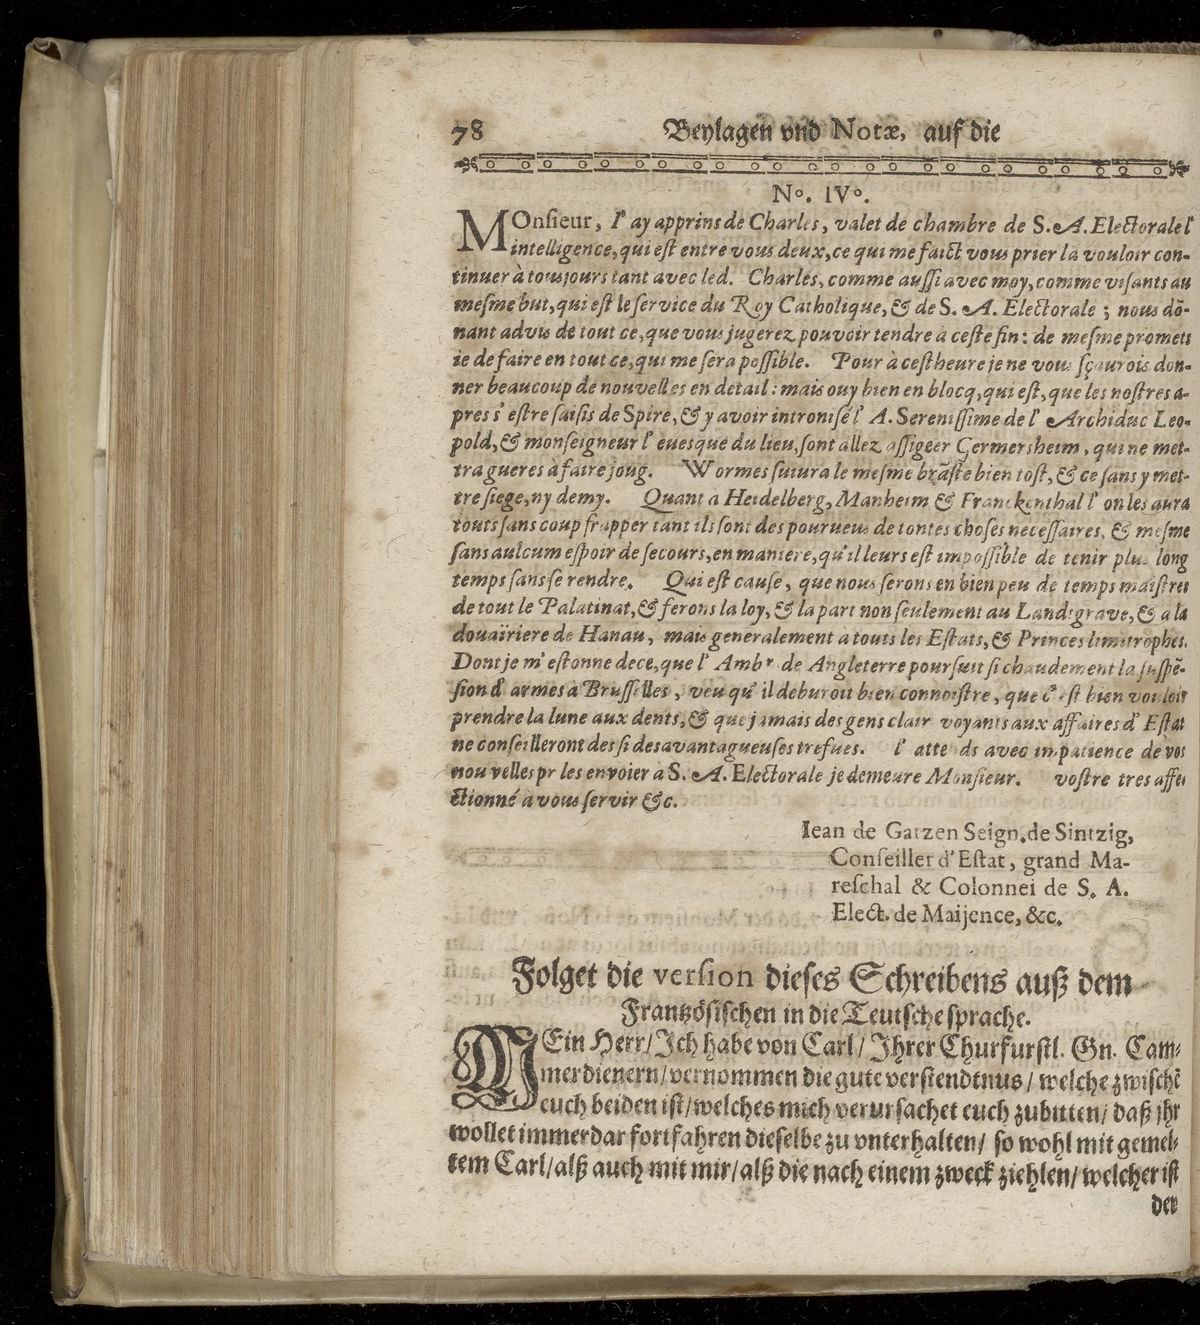 78 Beylagen vnd Notæ, auf die
Nº. IVº.
MOnſieur, I' ay apprins de Charles, valet de chambre de S. A. Electorale l'
intelligence, qui eſt entre vous deux, ce qui me faict vous prier la vouloir con-
tinuer à tousjours tant avec led. Charles, comme auſſi avec moy, comme viſants au
meſme but, qui eſt le ſervice du Roy Catholique, & de S. A. Electorale ; nous dō-
nant advis de tout ce, que vous jugerez pouvoir tendre à ceſte fin: de meſme promets
ie de faire en tout ce, qui me ſera poſſible. Pour à ceſtheure je ne vous ſçaurois don-
ner beaucoup de nouvelles en detail : mais ouy bien en blocq, qui eſt, que les noſtres a-
pres s' eſtre ſaiſis de Spire, & y avoir intronisé l' A. Sereniſſime de l' Archiduc Leo-
pold, & monſeigneur l' eueſque du lieu, ſont allez aſſigeer Germersheim, qui ne met-
tra gueres à faire joug. Wormes ſuiura le meſme brāſte bien toſt, & ce ſans y met-
tre ſiege, ny demy. Quant à Heidelberg, Manheim & Franckenthal l' on les aura
touts ſans coup frapper tant ils ſont des pourueus de toutes choſes neceſſaires, & meſme
ſans aulcum eſpoir de ſecours, en maniere, qu' il leurs eſt impoſſible de tenir plus long
temps ſans ſe rendre. Qui eſt cauſe, que nous ſerons en bien peu de temps maiſtres
de tout le Palatinat, & ferons la loy, & la part non ſeulement au Landtgrave, & a la
douaïriere de Hanau, mais generalement a touts les Eſtats, & Princes limitrophes.
Dont je m' eſtonne dece, que l' Ambr de Angleterre pourſuit ſi chaudement la ſuſpē-
ſion d' armes a Bruſſelles, veu qu' il deburoit bien connoiſtre, que c' eſt bien vouloir
prendre la lune aux dents, & que jamais des gens clair voyants aux affaires d' Eſtat
ne conſeilleront des ſi desavantagueuſes treſues. I' attends avec impatience de vos
nouvelles pr les envoier à S. A. Electorale je demeure Monſieur. voſtre tres affe-
ctionné a vous ſervir &c.
Iean de Gatzen Seign. de Sintzig,
Conſeiller d' Eſtat, grand Ma-
reſchal & Colonnei de S. A.
Elect. de Maijence, &c.
Folget die verſion dieſes Schreibens auß dem
Frantzöſiſchen in die Teutſche ſprache.
MEin Herr/ Ich habe von Carl/ Ihrer Churfurſtl. Gn. Cam-
merdienern/ vernommen die gute verſtendtnus / welche zwiſchē
euch beiden iſt/ welches mich verurſachet euch zubitten/ daß ihr
wollet immerdar fortfahren dieſelbe zu vnterhalten/ ſo wohl mit gemel-
tem Carl/ alß auch mit mir/ alß die nach einem zweck ziehlen/ welcher iſt
der